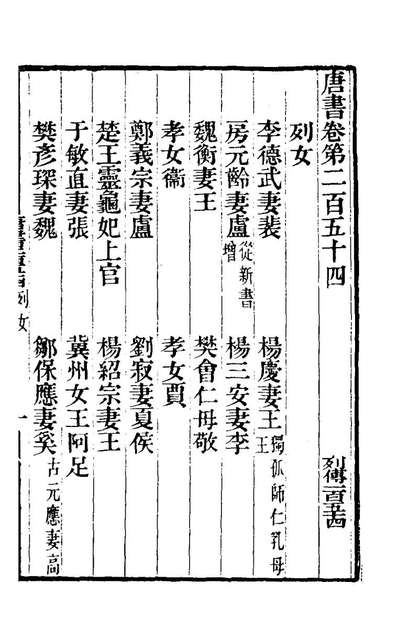 唐書卷第二百五十四 列傳一百五十四
列女
李德武妻裴 楊慶妻王 獨孤師仁乳母王
房元齡妻盧 從新書增 楊三安妻李
魏衡妻王 樊會仁母敬
孝女衞 孝女賈
鄭義宗妻盧 劉寂妻夏侯
楚王靈龜妃上官 楊紹宗妻王
于敏直妻張 冀州女王阿足
樊彥琛妻魏 鄒保應妻奚 古元應妻高
列女 一